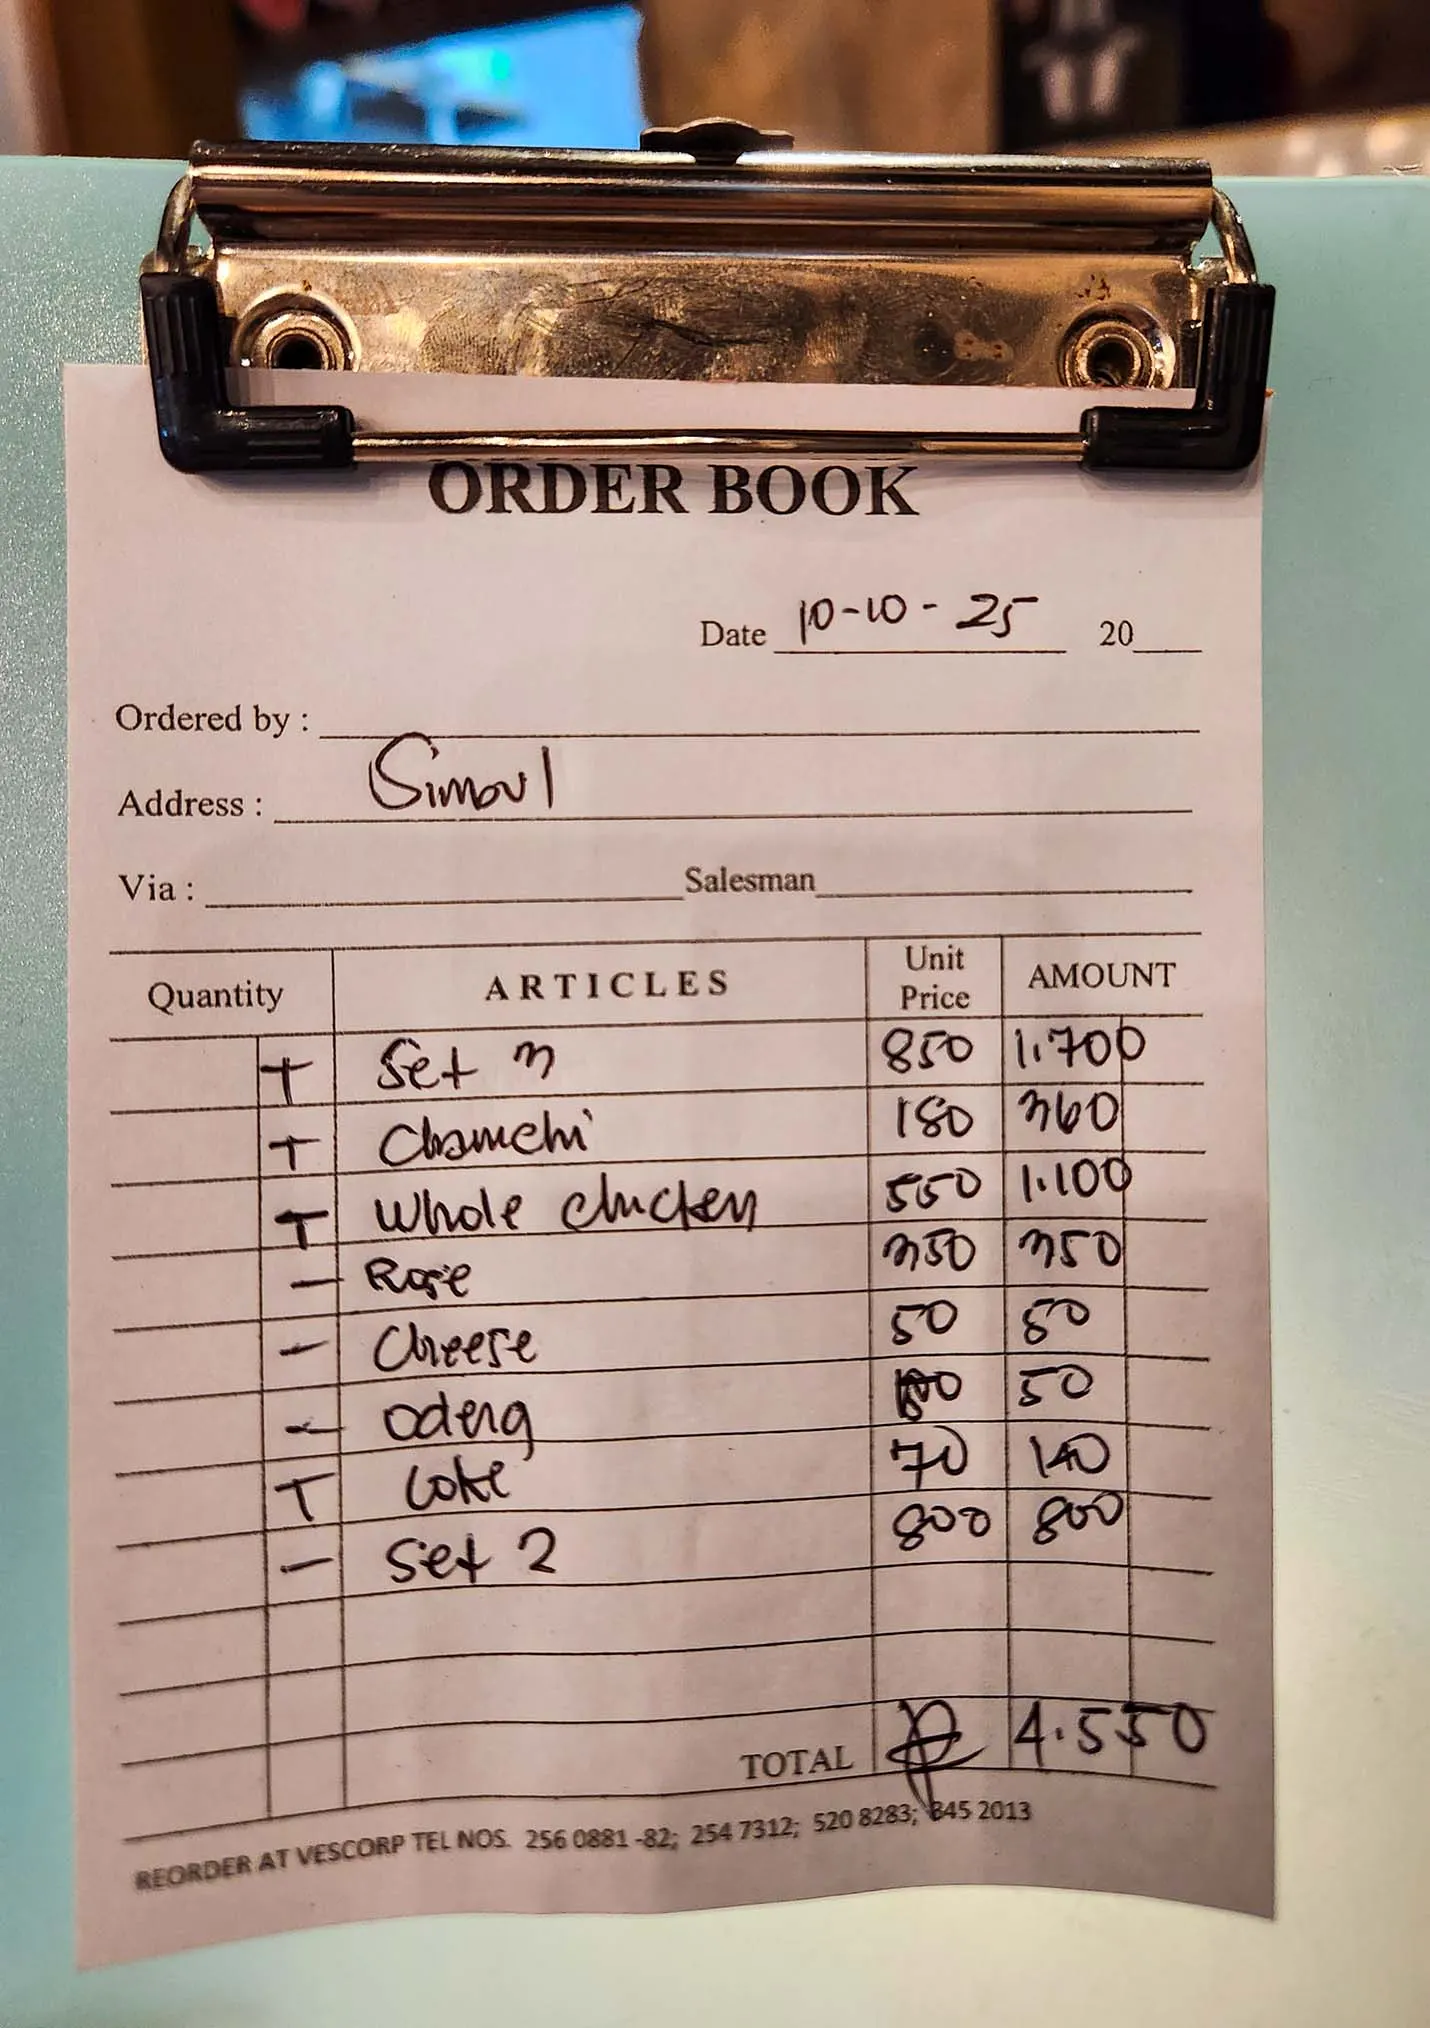 ORDER BOOK
Date 10-10-25 20
Ordered by :
Address : Simoul
Via : Salesman
Quantity ARTICLES Unit Price AMOUNT
T Set 3 850 1.700
T Chamchi 180 360
T Whole chicken 550 1.100
— Rose 350 350
— Cheese 50 50
— Odeng 50
T Coke 70 140
— Set 2 800 800
TOTAL 4.550
REORDER AT VESCORP TEL NOS. 256 0881 -82; 254 7312; 520 8283; 845 2013